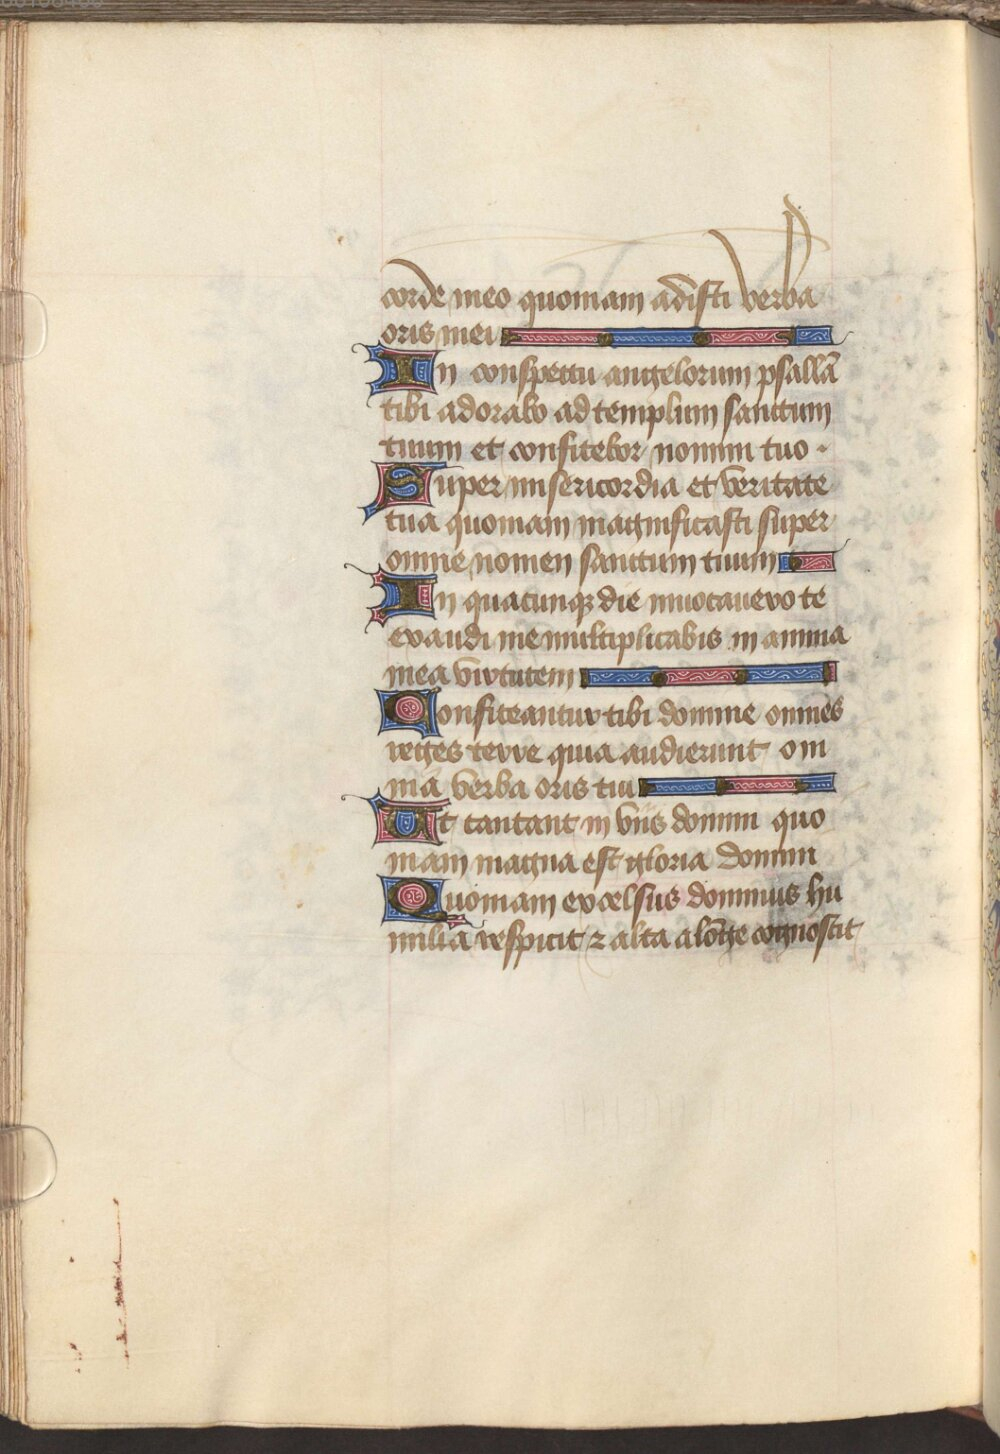 corde meo quoniam adisti verba
oris mei
In conspectu angelorum psallā
tibi adorabo ad templum sanctum
tuum et confitebor nomini tuo ·
Super misericordia et veritate
tua quoniam magnificasti super
omne nomen sanctum tuum
In quacunqꝫ die invocavero te
exaudi me multiplicabis in anima
mea virtutem
Confiteantur tibi domine omnes
reges terre quia audierunt om
nia verba oris tui
Et cantant in viis domini quo
niam magna est gloria domini
Quoniam excelsus dominus hu
milia respicit ⁊ alta a lōge cognoscit